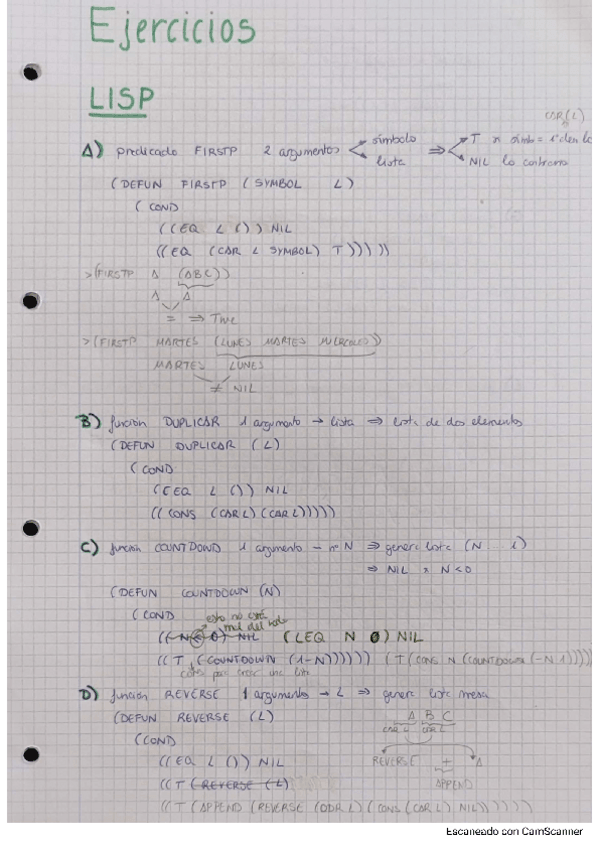 Ejercicios
LISP
CAR(L)
A) predicado FIRSTP 2 argumentos símbolo ⇒ T
lista NIL lo contrario
(DEFUN FIRSTP (SYMBOL L)
(COND
((EQ L ()) NIL
((EQ (CAR L SYMBOL) T)))))
>(FIRSTP A (ABC))
A A
= ⇒ True
>(FIRSTP MARTES (LUNES MARTES MIERCOLES))
MARTES LUNES
≠ NIL
B) función DUPLICAR 1 argumento → lista ⇒ lista de dos elementos
(DEFUN DUPLICAR (L)
(COND
((EQ L ()) NIL
((CONS (CAR L) (CAR L)))))
C) función COUNTDOWD 1 argumento – nº N ⇒ genere lista (N 1)
⇒ NIL x N<0
(DEFUN COUNTDOWN (N)
(COND
esto no está
mal del todo
((N < 0) NIL (LEQ N 0) NIL
((T (COUNTDOWN (1-N)))))) (T(CONS N (COUNTDOWN (-N 1)))))
para crear una lista
D) función REVERSE 1 argumento → L ⇒ genere lista
(DEFUN REVERSE (L)
A B C
CAR L CDR L
(COND
((EQ L ()) NIL
REVERSE + A
((T (REVERSE (L)
APPEND
((T (APPEND (REVERSE (CDR L) (CONS (CAR L) NIL))))))
Escaneado con CamScanner